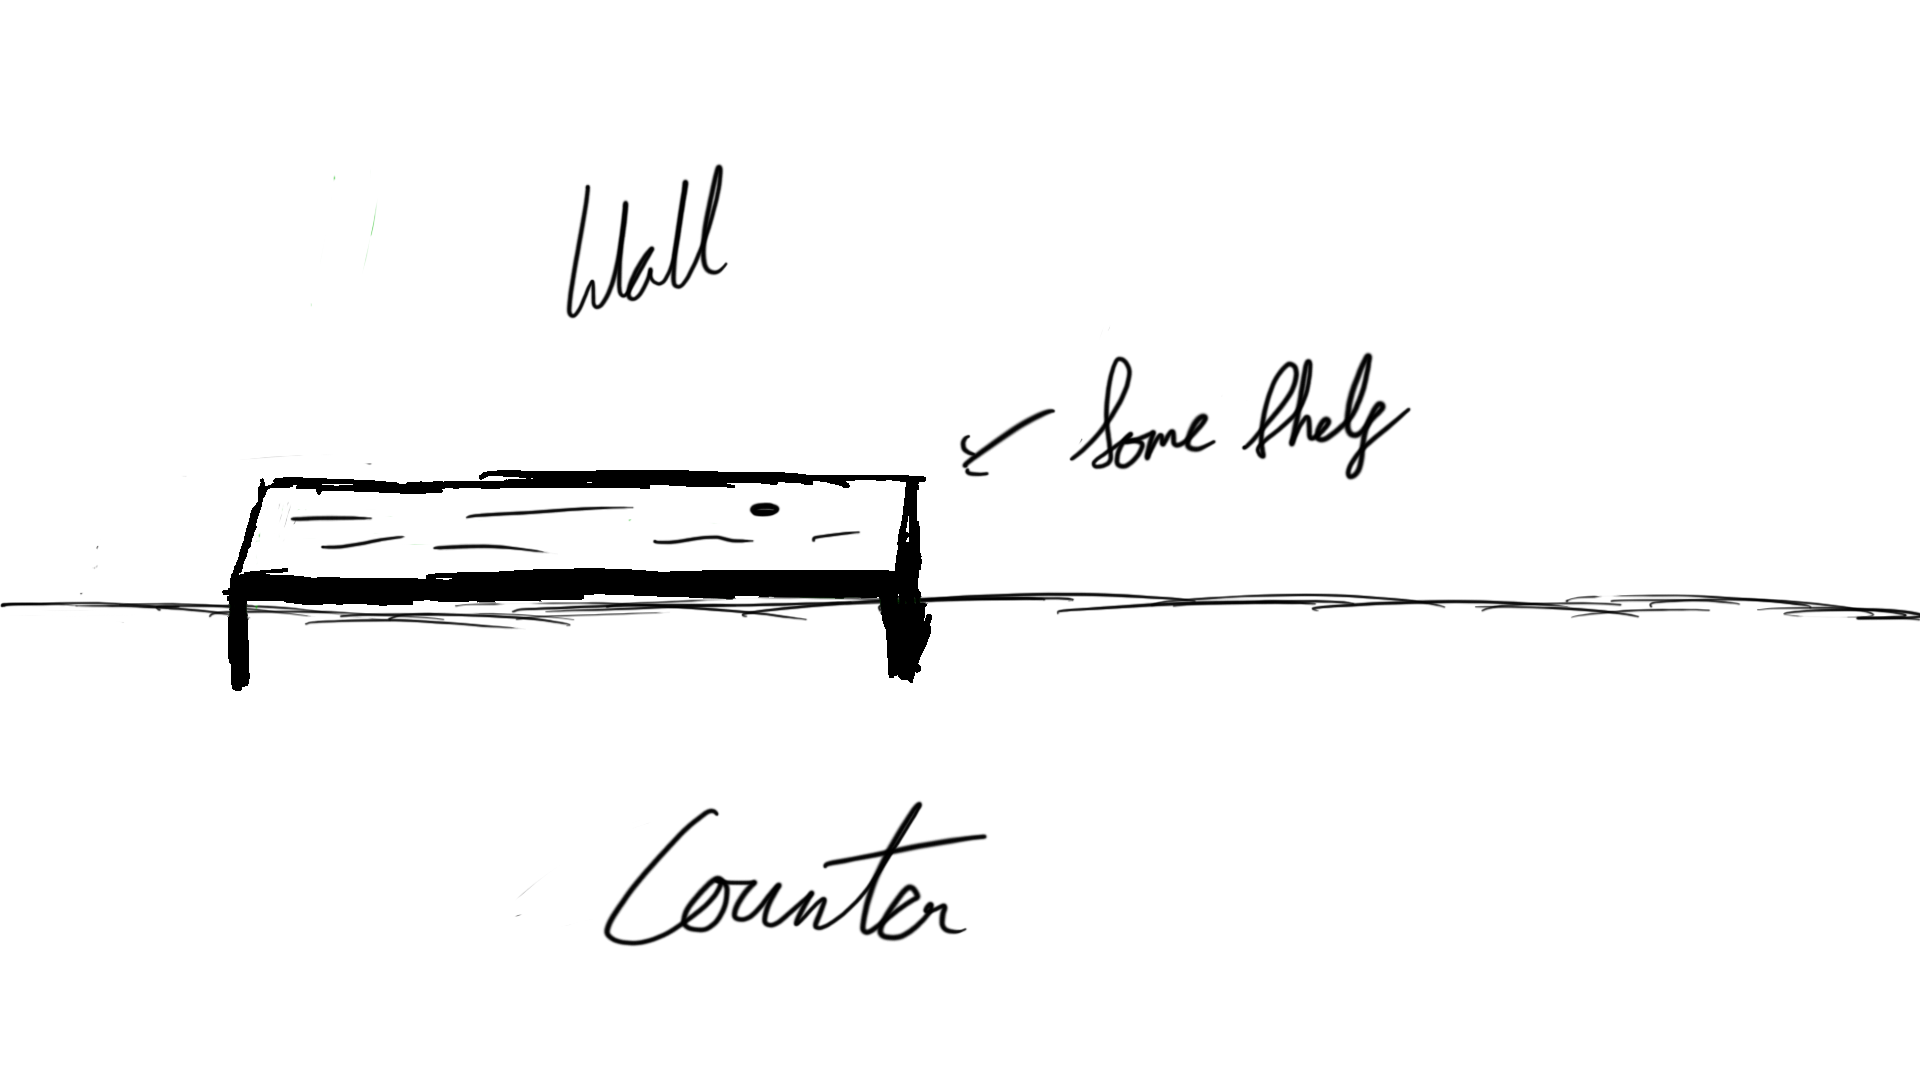 Wall
Some Shelf
Counter